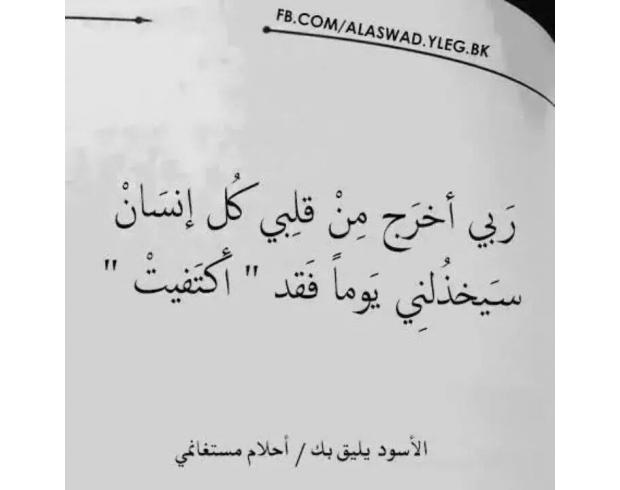 FB.COM/ALASWAD.YLEG.BK
رَبي أخرَج مِنْ قلِبي كُل إنسَانْ
سيَخذُلنِي يَوماً فَقد " أكتَفيتْ "
الأسود يليق بك / أحلام مستغانمي